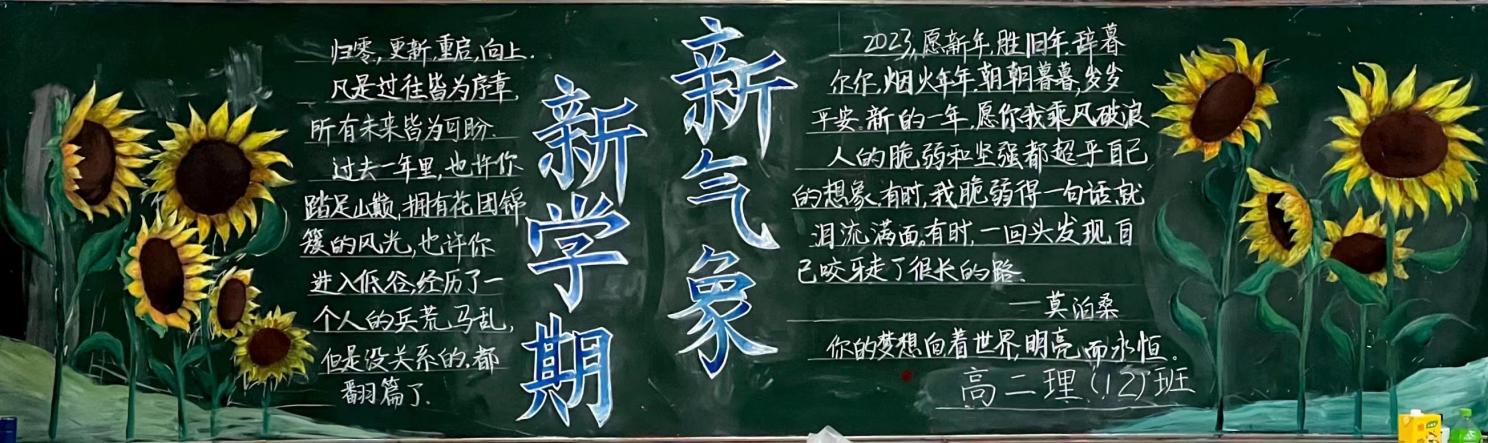 归零,更新,重启,向上.
凡是过往皆为序章,
所有未来皆为可盼.
过去一年里,也许你
踏足山巅,拥有花团锦
簇的风光,也许你
进入低谷,经历了一
个人的兵荒马乱,
但是没关系的,都
翻篇了.
新学期
新气象
2023,愿新年,胜旧年,辞暮
尔尔,烟火年年,朝朝暮暮,岁岁
平安。新的一年,愿你我乘风破浪
人的脆弱和坚强都超乎自己
的想象,有时,我脆弱得一句话就
泪流满面,有时,一回头发现自
己咬牙走了很长的路.
—莫泊桑
你的梦想向着世界,明亮而永恒。
高二理(12)班